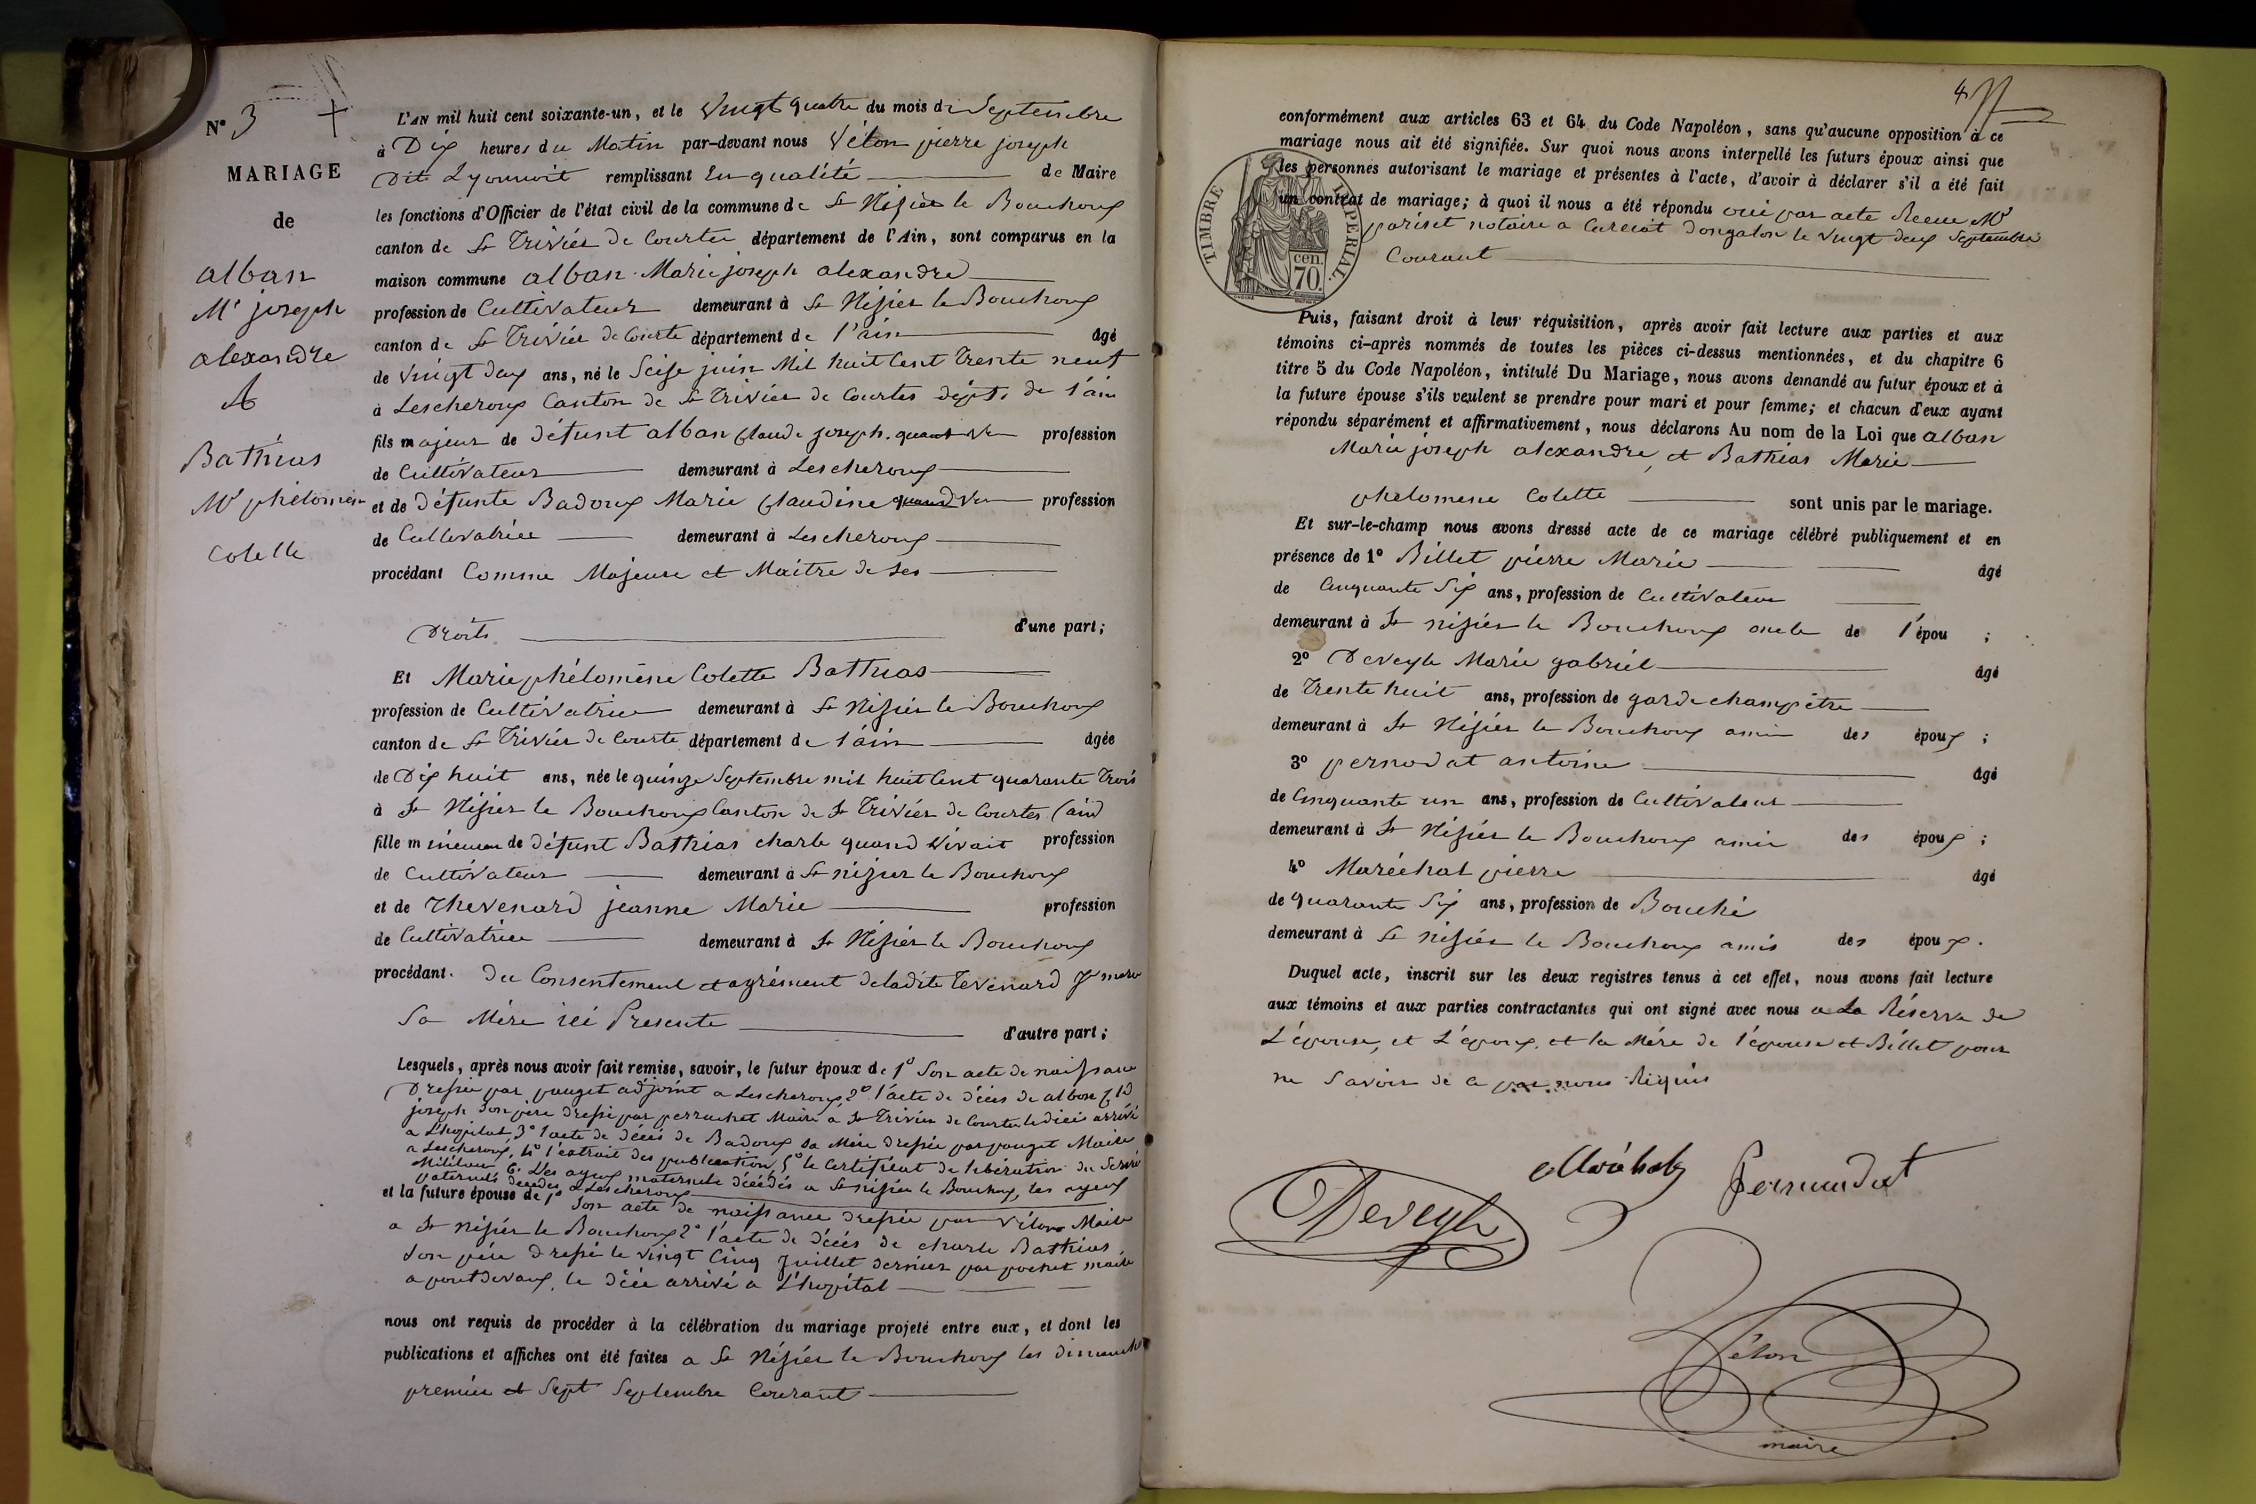 N° 3 +
MARIAGE
de
alban
Mie joseph
alexandre
&
Bathias
Mie phélomène
Colette
L'AN mil huit cent soixante-un, et le Vingt quatre du mois de Septembre
à Dix heures du Matin par-devant nous Vélon pierre joseph
Dit Lyonnoit remplissant En qualité de Maire
les fonctions d'Officier de l'état civil de la commune de St Nisier le Bouchoux
canton de St Trivier de Courtes département de l'Ain, sont comparus en la
maison commune alban Marie joseph alexandre
profession de Cultivateur demeurant à St Nisier le Bouchoux
canton de St Trivier de Courte département de l'ain âgé
de Vingt deux ans, né le Seise juin Mil huit Cent Trente neuf
à Lescheroux Canton de St Trivier de Courtes dépt de l'ain
fils majeur de défunt alban Claude joseph quand Vi profession
de Cultivateur demeurant à Lescheroux
et de défunte Badoux Marie Claudine quand Vi profession
de Cultivatrice demeurant à Lescheroux
procédant Comme Majeure et Maitre de Ses
Droits d'une part;
Et Marie phélomène Colette Bathias
profession de Cultivatrice demeurant à St Nisier le Bouchoux
canton de St Trivier de Courte département de l'ain âgée
de Dix huit ans, née le quinze Septembre mil huit Cent quarante Trois
à St Nisier le Bouchoux Canton de St Trivier de Courtes (ain)
fille mineure de défunt Bathias charle quand Vivait profession
de Cultivateur demeurant à St nisier le Bouchoux
et de Thevenard jeanne Marie profession
de Cultivatrice demeurant à St Nisier le Bouchoux
procédant. du Consentement et agrément de ladite Tevenard
Sa Mère ici Presente d'autre part;
Lesquels, après nous avoir fait remise, savoir, le futur époux de 1° Son acte de naissance
Dressée par pauget adjoint a Lescheroux 2° l'acte de décès de alban
joseph Son père dressé par perruchet Maire a St Trivier de Courtes le décès arrivé
a L'hopital, 3° l'acte de décès de Badoux Sa Mère dressée par pauget Maire
a Lescheroux, 4° l'extrait des publication, 5° le Certificat de libération du Service
Militaire 6° Des ayeux maternels décédés a St nisier le Bouchoux, les ayeux
paternels décédés a Lescheroux
et la future épouse de 1° Son acte de naissance dressée par Vélon Maire
a St Nisier le Bouchoux 2° l'acte de décès de charle Bathias
Son père dressé le vingt Cinq juillet dernier par pochet maire
a pontdevaux, le décé arrivé a L'hopital
nous ont requis de procéder à la célébration du mariage projeté entre eux, et dont les
publications et affiches ont été faites a St Nisier le Bouchoux les dimanche
premier et Sept Septembre Courant
4
conformément aux articles 63 et 64 du Code Napoléon, sans qu'aucune opposition à ce
mariage nous ait été signifiée. Sur quoi nous avons interpellé les futurs époux ainsi que
les personnes autorisant le mariage et présentes à l'acte, d'avoir à déclarer s'il a été fait
un contrat de mariage; à quoi il nous a été répondu oui par acte Recu Me
pariset notaire a Curciat dongalon le vingt deux Septembre
Courant
TIMBRE IMPERIAL.
cen.
70.
Puis, faisant droit à leur réquisition, après avoir fait lecture aux parties et aux
témoins ci-après nommés de toutes les pièces ci-dessus mentionnées, et du chapitre 6
titre 5 du Code Napoléon, intitulé Du Mariage, nous avons demandé au futur époux et à
la future épouse s'ils veulent se prendre pour mari et pour femme; et chacun d'eux ayant
répondu séparément et affirmativement, nous déclarons Au nom de la Loi que alban
Marie joseph alexandre, et Bathias Marie
phelomene Colette sont unis par le mariage.
Et sur-le-champ nous avons dressé acte de ce mariage célébré publiquement et en
présence de 1° Billet pierre Marie âgé
de Cinquante Six ans, profession de Cultivateur
demeurant à St nisier le Bouchoux oncle de l'épou ;
2° Deveyle Marie gabriel âgé
de Trente huit ans, profession de garde champêtre
demeurant à St Nisier le Bouchoux ami des époux ;
3° pernodat antoine âgé
de Cinquante un ans, profession de Cultivateur
demeurant à St Nisier le Bouchoux amie des époux ;
4° Maréchal pierre âgé
de quarante Six ans, profession de Bouché
demeurant à St nisier le Bouchoux amis des époux.
Duquel acte, inscrit sur les deux registres tenus à cet effet, nous avons fait lecture
aux témoins et aux parties contractantes qui ont signé avec nous a La Réserve de
L'épouse, et L'époux, et la Mère de l'épouse et Billet pour
ne Savoir de ce par nous Requis
Maréchal Pernoudat
Deveyle
Vélon
maire